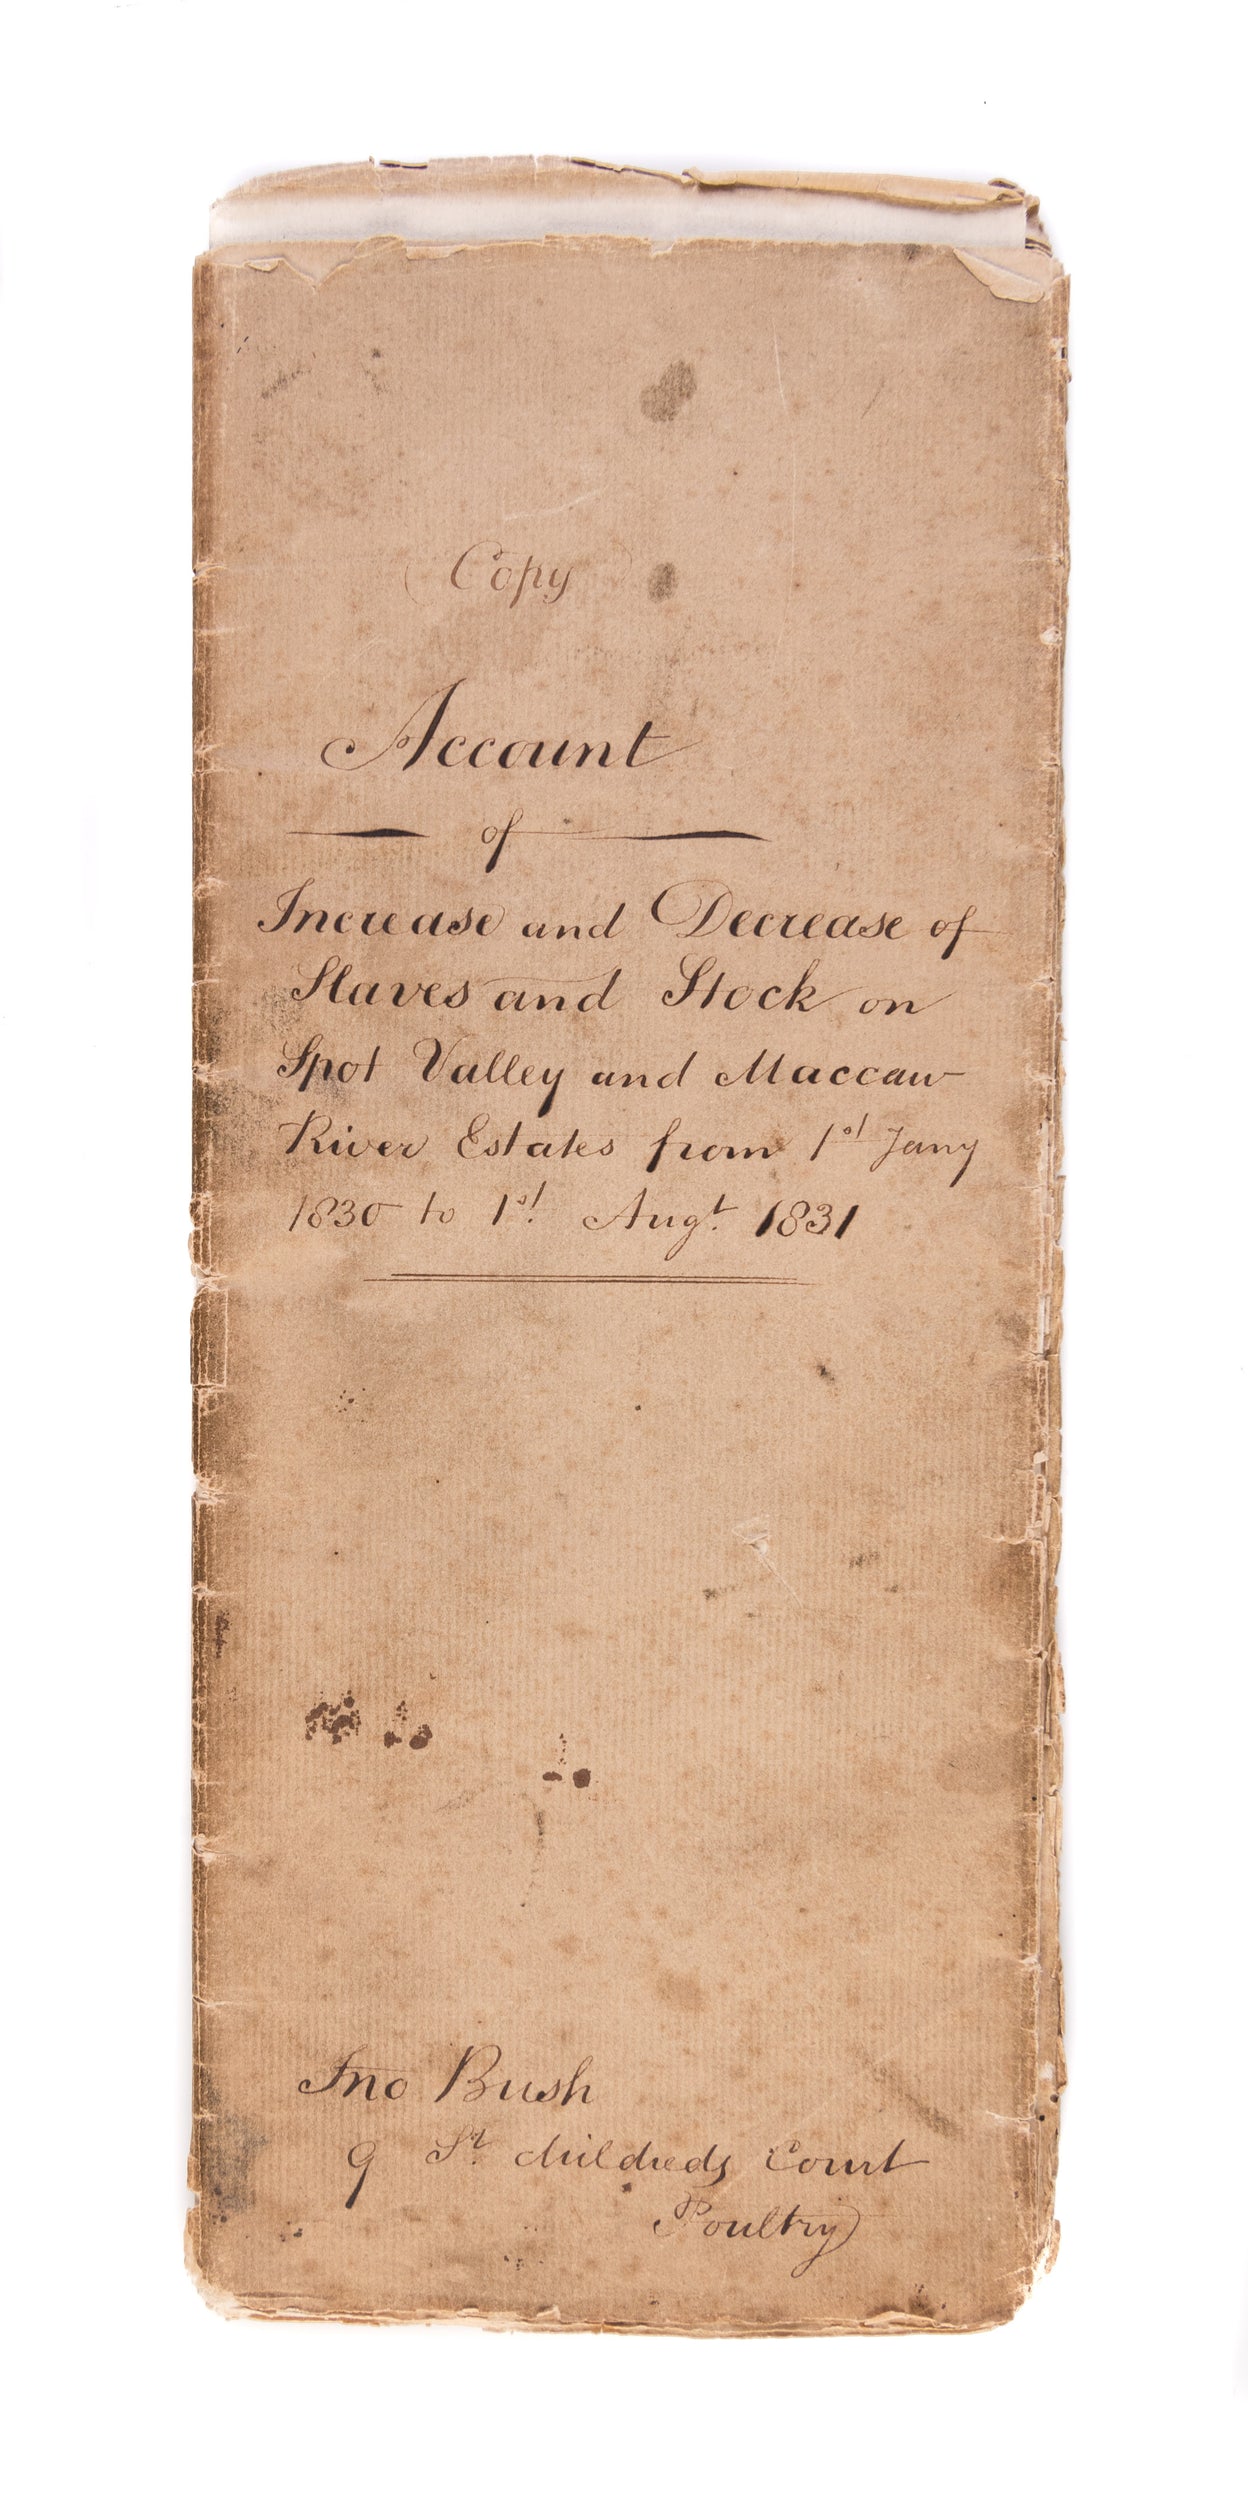 Copy
Account
of
Increase and Decrease of
Slaves and Stock on
Spot Valley and Maccaw
River Estates from 1st Jany
1830 to 1st. Augt. 1831
Jno Bush
9 St. Mildreds Court
Poultry